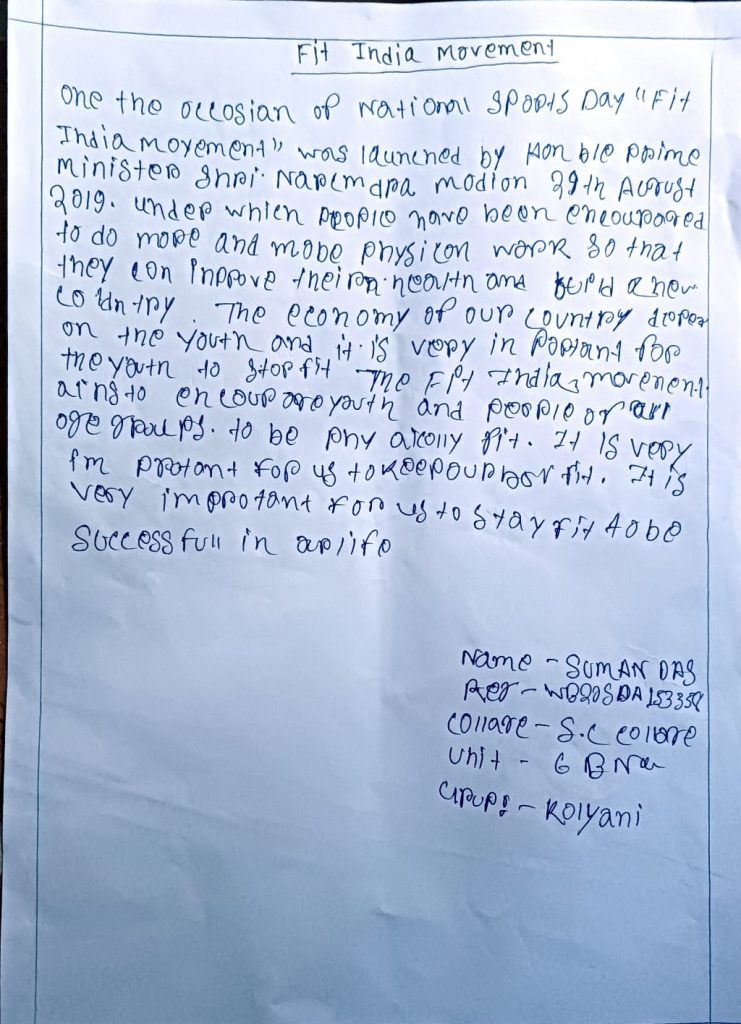 Fit India movement
One the occosian of National sports Day "Fit
India movement" was launched by Hon ble prime
minister Shri. Naremdra modion 29th August
2019. under which people have been encouraged
to do more and more physicon work so that
they con Inprove their health and build a new
country. The economy of our country
on the youth and it is very in portant for
the youth to stop fit The Fit India movement
aims to encourage youth and people of all
oge groups. to be phy aically fit. It is very
im protant for us to keep our body fit. It is
very improtant for us to stay fit to be
Successfull in life
Name - SUMAN DAS
Reg - WB20SDA153358
Collage - S.C collage
Unit - 6 B
Group: - Kolyani